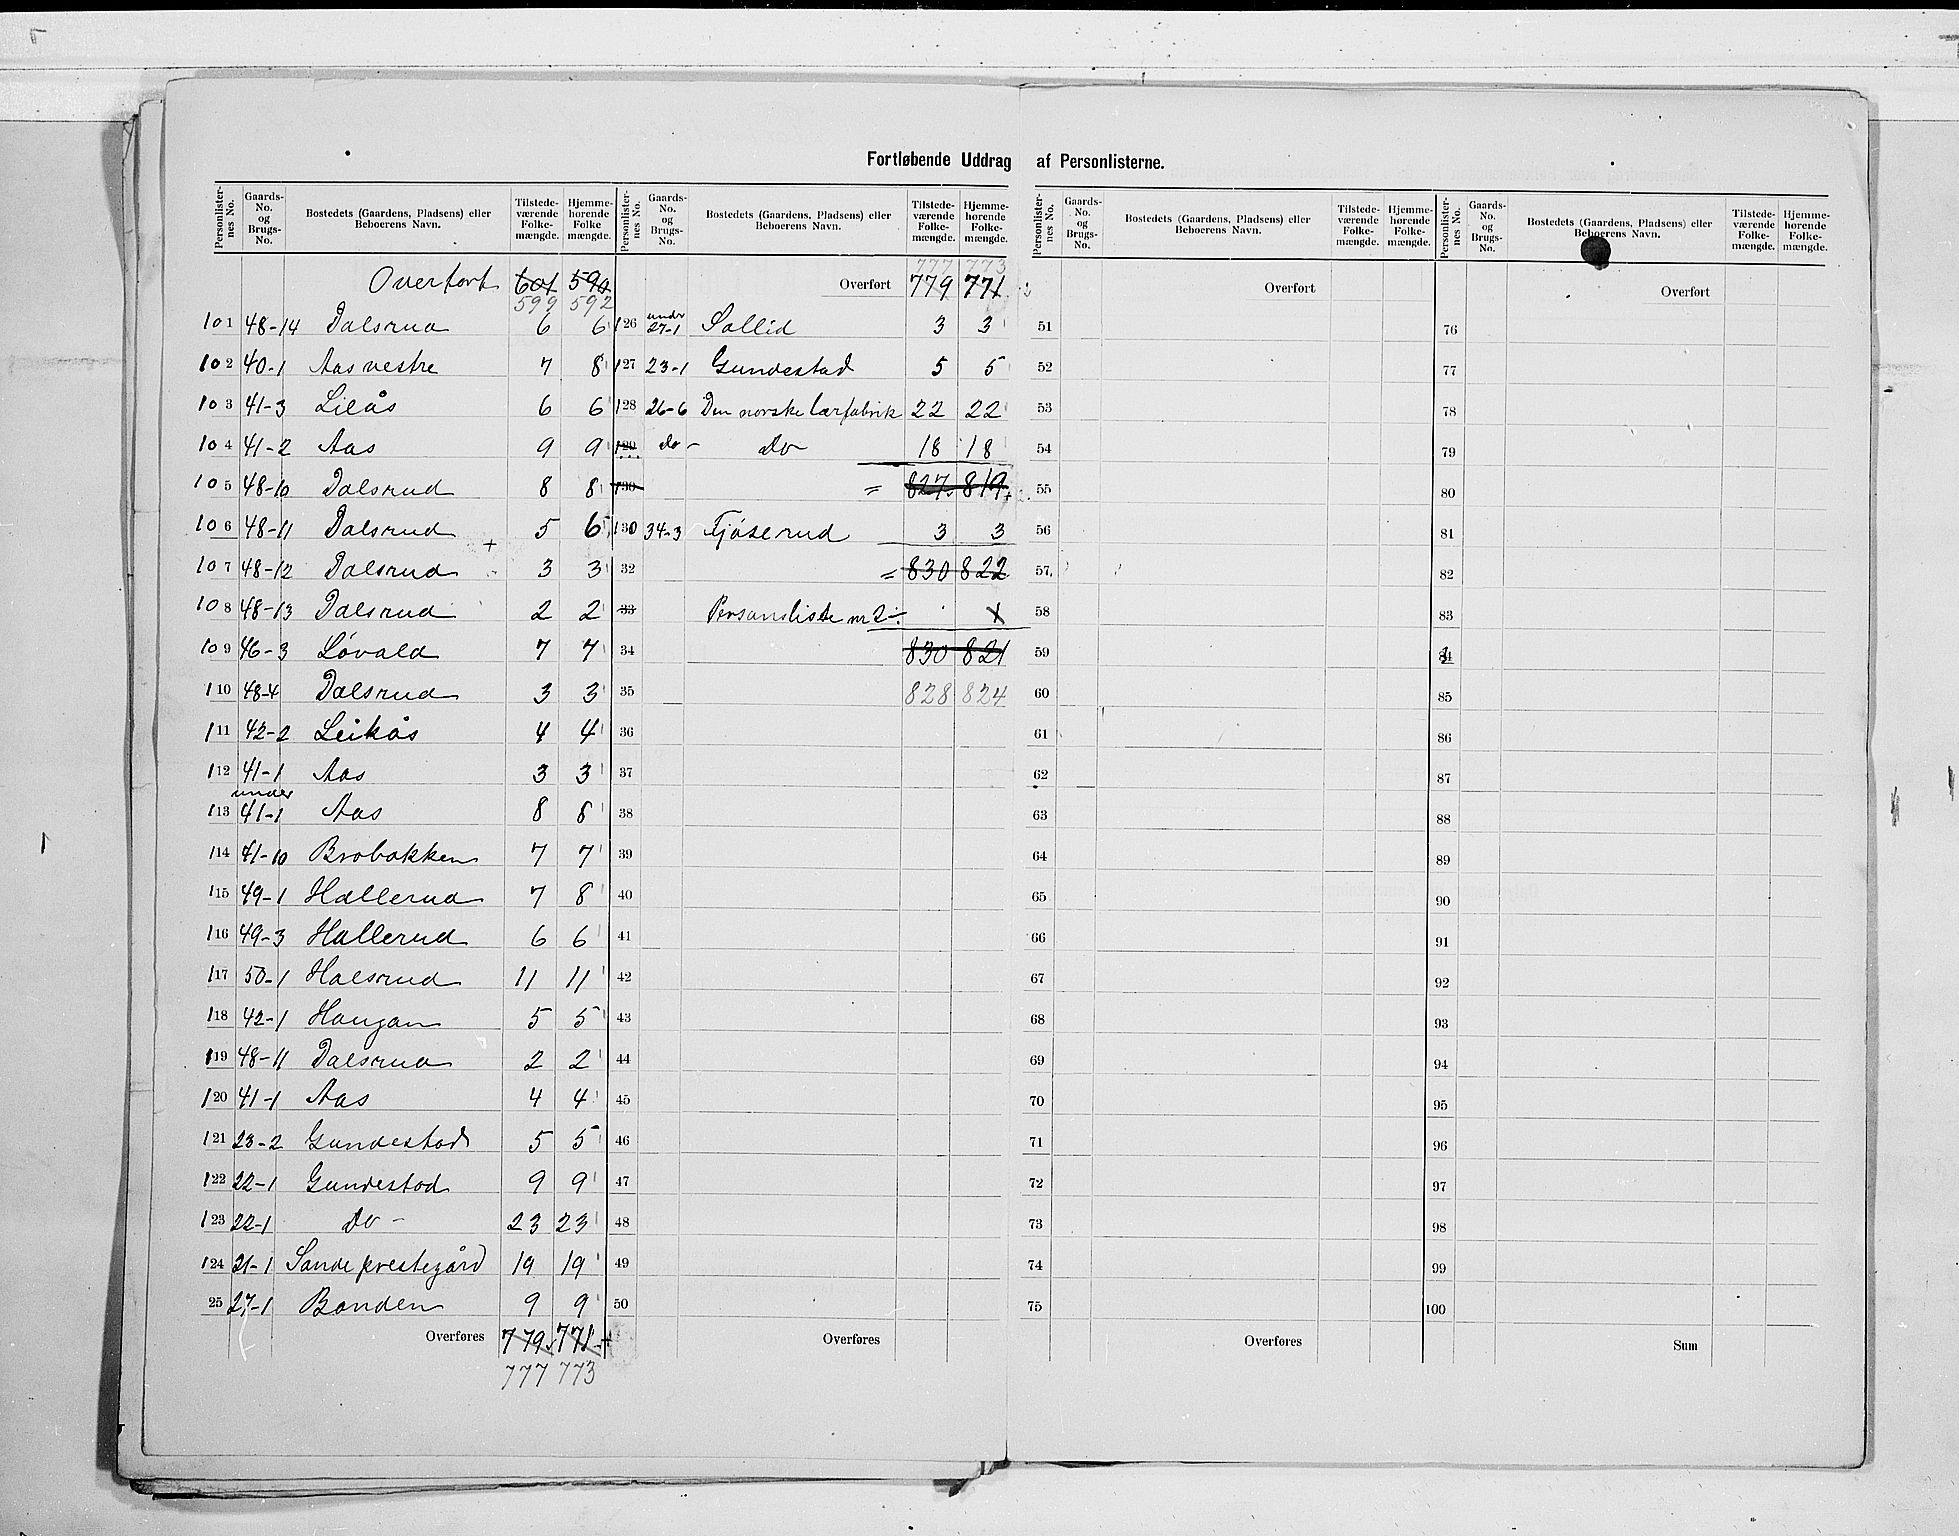 Fortløbende Uddrag af Personlisterne.
Personlister-nes No. Gaards-No. og Brugs-No. Bostedets (Gaardens, Pladsens) eller Beboerens Navn. Tilstede-værende Folke-mængde. Hjemme-hørende Folke mængde.
Overført 601 594
599 592
101 48-14 Dalsrud 6 6
102 40-1 Aas vestre 7 8
103 41-3 Lilås 6 6
104 41-2 Aas 9 9
105 48-10 Dalsrud 8 8
106 48-11 Dalsrud 5 6
107 48-12 Dalsrud 3 3
108 48-13 Dalsrud 2 2
109 46-3 Løvald 7 7
110 48-4 Dalsrud 3 3
111 42-2 Leikås 4 4
112 41-1 Aas 3 3
113 under 41-1 Aas 8 8
114 41-10 Brobakken 7 7
115 49-1 Hallerud 7 8
116 49-3 Hallerud 6 6
117 50-1 Halsrud 11 11
118 42-1 Haugan 5 5
119 48-11 Dalsrud 2 2
120 41-1 Aas 4 4
121 23-2 Gundestad 5 5
122 22-1 Gundestad 9 9
123 22-1 Do - 23 23
124 21-1 Sande prestegård 19 19
25 27-1 Banden 9 9
Overføres 779 771
777 773
Personlister-nes No. Gaards-No. og Brugs-No. Bostedets (Gaardens, Pladsens) eller Beboerens Navn. Tilstede-værende Folke-mængde. Hjemme-hørende Folke-mængde.
777 773
Overført 779 771
126 under 27-1 Sollid 3 3
127 23-1 Gundestad 5 5
128 26-6 Den norske lærfabrik 22 22
129 do - Do 18 18
130 = 827 819
130 34-3 Fjøserud 3 3
32 = 830 822
33 Personsliste nr 2 ÷ 1
34 830 821
35 828 824
36
37
38
39
40
41
42
43
44
45
46
47
48
49
50
Overføres
Personlister-nes No. Gaards-No. og Brugs-No. Bostedets (Gaardens, Pladsens) eller Beboerens Navn. Tilstede-værende Folke-mængde. Hjemme-hørende Folke-mængde.
Overført
51
52
53
54
55
56
57
58
59
60
61
62
63
64
65
66
67
68
69
70
71
72
73
74
75
Overføres
Personlister-nes No. Gaards-No. og Brugs-No. Bostedets (Gaardens, Pladsens) eller Beboerens Navn. Tilstede-værende Folke-mængde. Hjemme-hørende Folke-mængde.
Overført
76
77
78
79
80
81
82
83
84
85
86
87
88
89
90
91
92
93
94
95
96
97
98
99
100
Sum